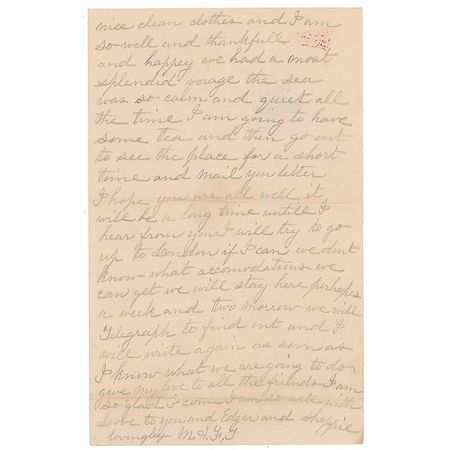 nice clean clothes and I am
so well and thankfull
and happey we had a most
splendid voiage the sea
was so calm and quiet all
the time I am going to have
some tea and then go out
to see the place for a short
time and mail you letter
I hope you are all well it
will be a long time untill I
hear from you I will try to go
up to London if I can we dont
know what accomodations we
can get we will stay here perhaps
a week and two morrow we will
Telegraph to find out and I
will write again as soon as
I know what we are going to do
give my love to all the friends I am
so glad I come I am so well with
love to you and Edgar and
lovingly M.A.F.G